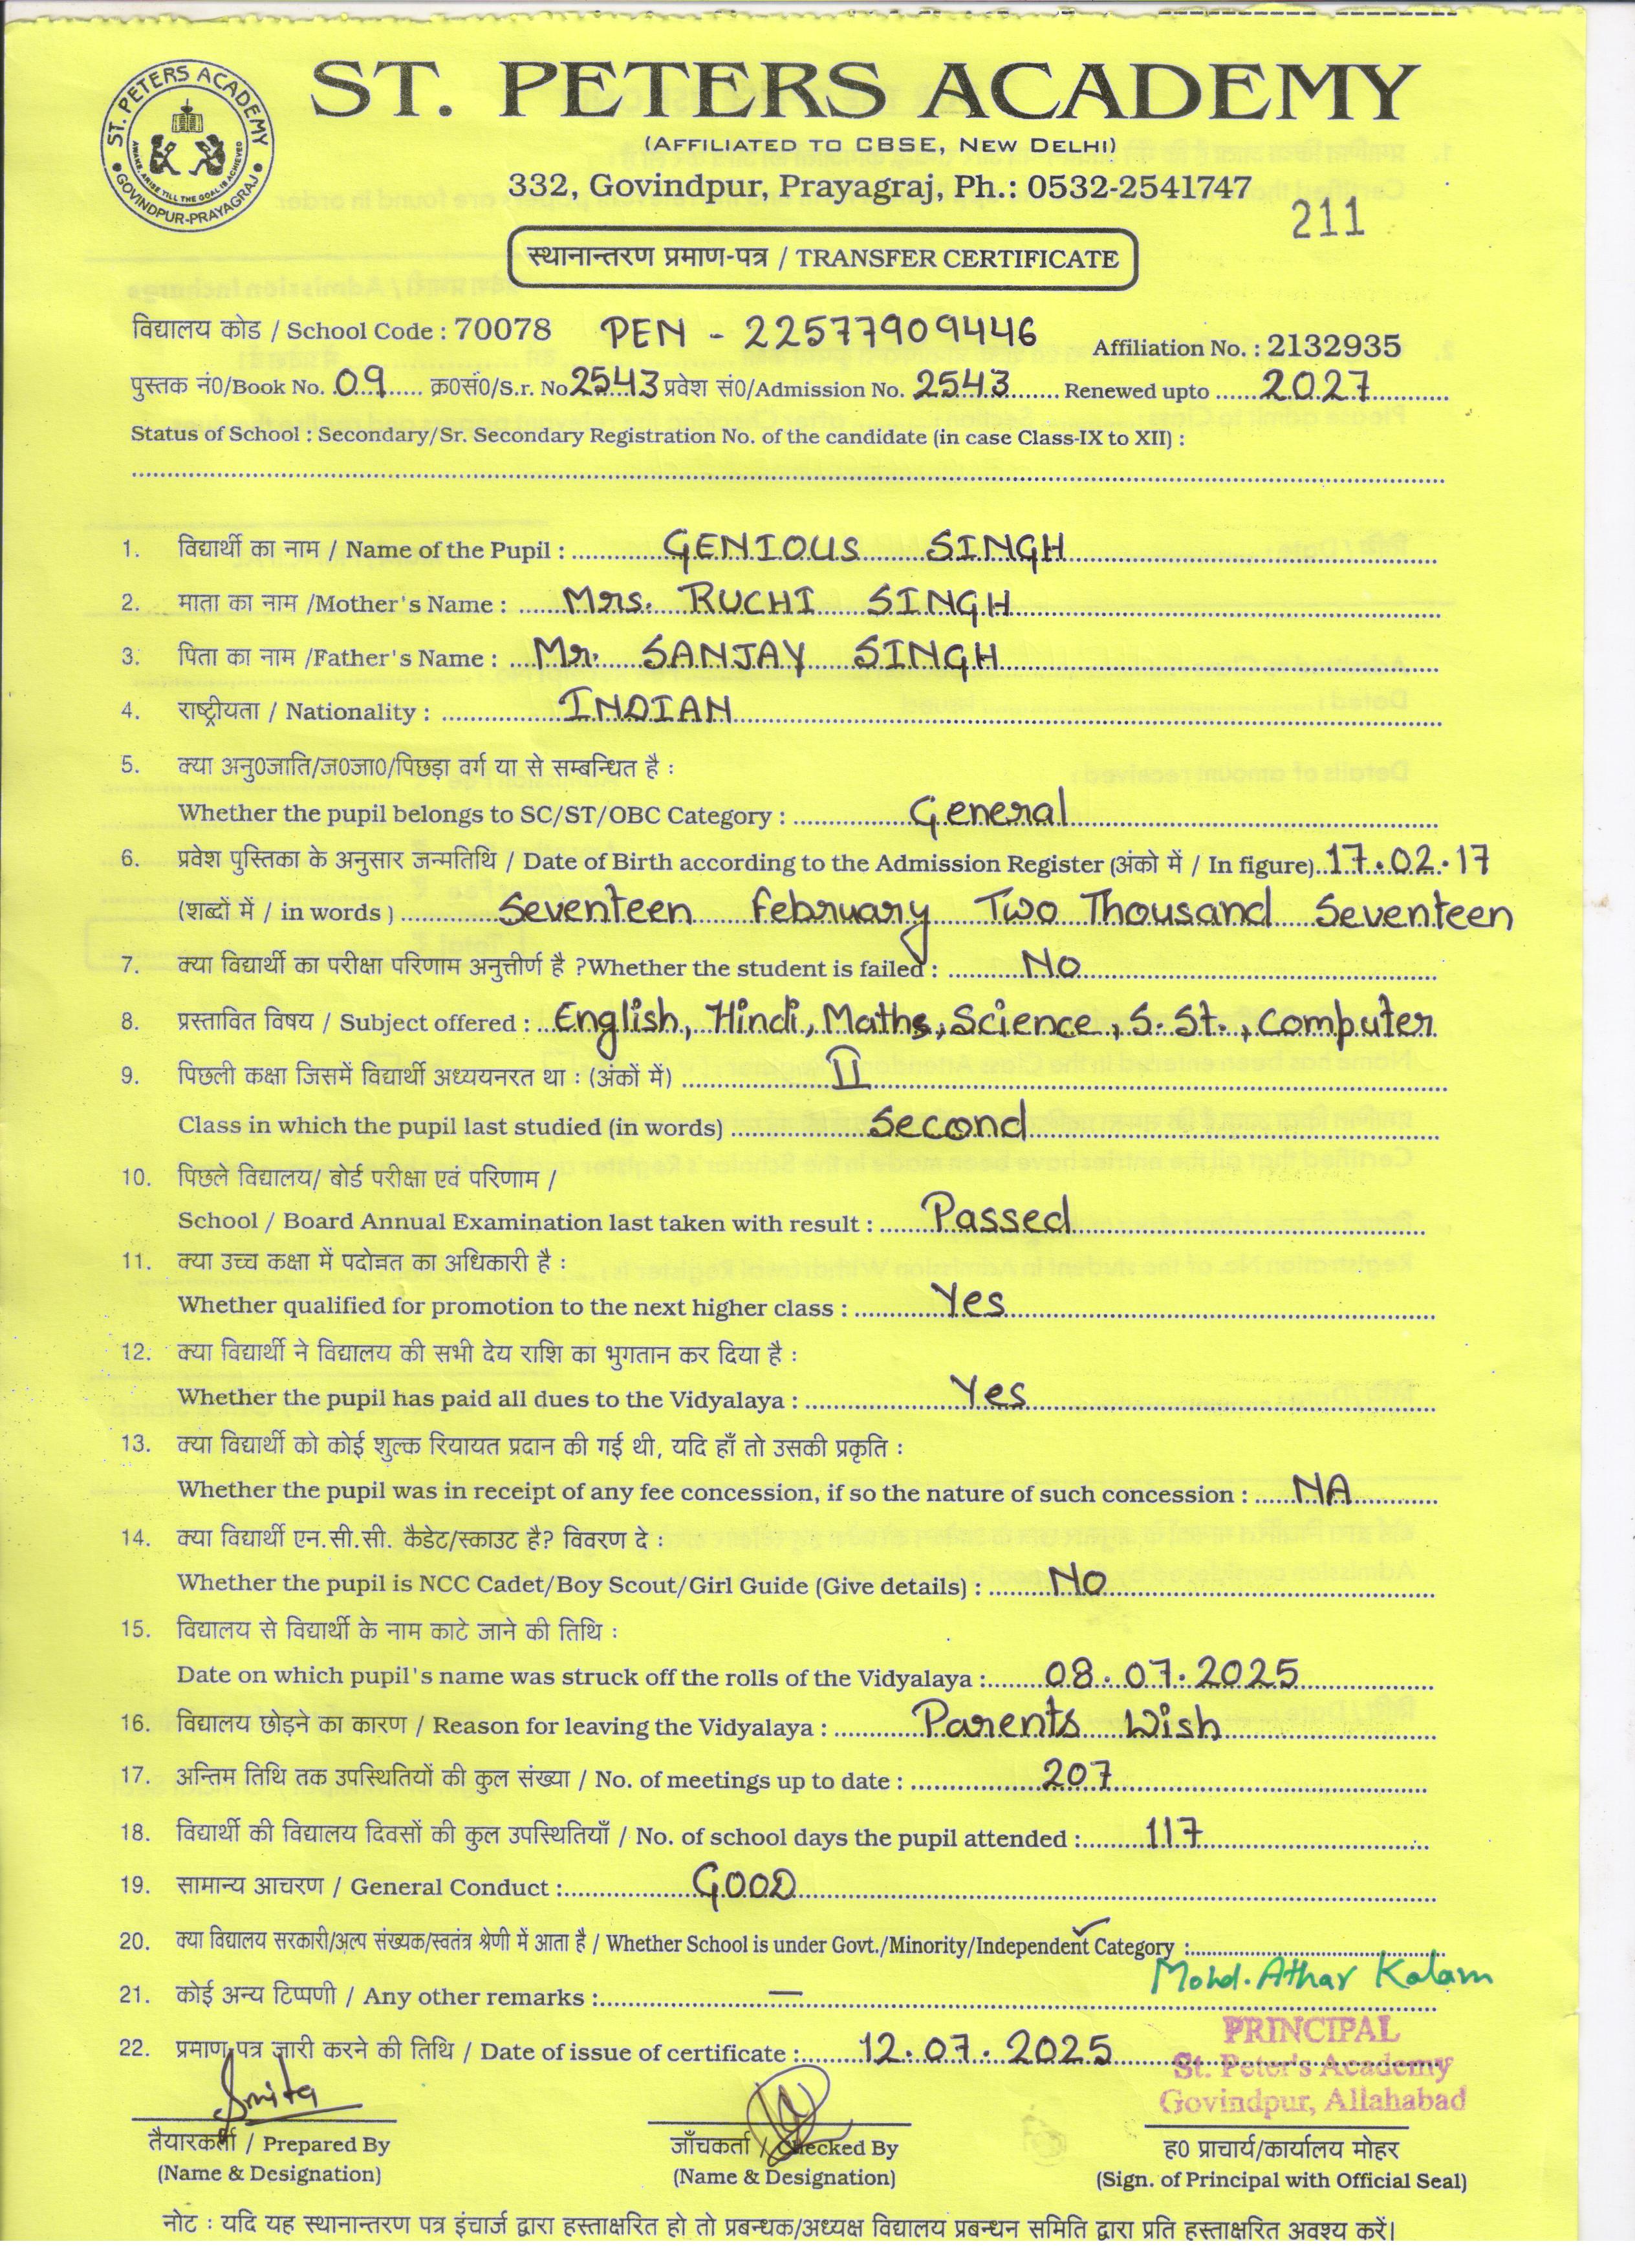 ST. PETERS ACADEMY
GOVINDPUR-PRAYAGRAJ
AWAKE, ARISE TILL THE GOAL IS ACHIEVED
ST. PETERS ACADEMY
(AFFILIATED TO CBSE, NEW DELHI)
332, Govindpur, Prayagraj, Ph.: 0532-2541747
211
स्थानान्तरण प्रमाण-पत्र / TRANSFER CERTIFICATE
विद्यालय कोड / School Code : 70078 PEN - 22577909446 Affiliation No. : 2132935
पुस्तक नं0/Book No. 09 क्र0सं0/S.r. No 2543 प्रवेश सं0/Admission No. 2543 Renewed upto 2027
Status of School : Secondary/Sr. Secondary Registration No. of the candidate (in case Class-IX to XII) :
1. विद्यार्थी का नाम / Name of the Pupil : GENIOUS SINGH
2. माता का नाम /Mother's Name : Mrs. RUCHI SINGH
3. पिता का नाम /Father's Name : Mr. SANJAY SINGH
4. राष्ट्रीयता / Nationality : INDIAN
5. क्या अनु0जाति/ज0जा0/पिछड़ा वर्ग या से सम्बन्धित है :
Whether the pupil belongs to SC/ST/OBC Category : General
6. प्रवेश पुस्तिका के अनुसार जन्मतिथि / Date of Birth according to the Admission Register (अंको में / In figure) 17.02.17
(शब्दों में / in words ) Seventeen february Two Thousand Seventeen
7. क्या विद्यार्थी का परीक्षा परिणाम अनुत्तीर्ण है ?Whether the student is failed : No
8. प्रस्तावित विषय / Subject offered : English, Hindi, Maths, Science, S. St., Computer
9. पिछली कक्षा जिसमें विद्यार्थी अध्ययनरत था : (अंकों में) II
Class in which the pupil last studied (in words) Second
10. पिछले विद्यालय/ बोर्ड परीक्षा एवं परिणाम /
School / Board Annual Examination last taken with result : Passed
11. क्या उच्च कक्षा में पदोन्नत का अधिकारी है :
Whether qualified for promotion to the next higher class : Yes
12. क्या विद्यार्थी ने विद्यालय की सभी देय राशि का भुगतान कर दिया है :
Whether the pupil has paid all dues to the Vidyalaya : Yes
13. क्या विद्यार्थी को कोई शुल्क रियायत प्रदान की गई थी, यदि हाँ तो उसकी प्रकृति :
Whether the pupil was in receipt of any fee concession, if so the nature of such concession : NA
14. क्या विद्यार्थी एन.सी.सी. कैडेट/स्काउट है? विवरण दे :
Whether the pupil is NCC Cadet/Boy Scout/Girl Guide (Give details) : No
15. विद्यालय से विद्यार्थी के नाम काटे जाने की तिथि :
Date on which pupil's name was struck off the rolls of the Vidyalaya : 08.07.2025
16. विद्यालय छोड़ने का कारण / Reason for leaving the Vidyalaya : Parents Wish
17. अन्तिम तिथि तक उपस्थितियों की कुल संख्या / No. of meetings up to date : 207
18. विद्यार्थी की विद्यालय दिवसों की कुल उपस्थितियाँ / No. of school days the pupil attended : 117
19. सामान्य आचरण / General Conduct : GOOD
20. क्या विद्यालय सरकारी/अल्प संख्यक/स्वतंत्र श्रेणी में आता है / Whether School is under Govt./Minority/Independent Category :
Mohd. Athar Kalam
21. कोई अन्य टिप्पणी / Any other remarks : —
PRINCIPAL
22. प्रमाण पत्र जारी करने की तिथि / Date of issue of certificate : 12.07.2025
St. Peter's Academy
Govindpur, Allahabad
Smita
तैयारकर्ता / Prepared By जाँचकर्ता / Checked By ह0 प्राचार्य/कार्यालय मोहर
(Name & Designation) (Name & Designation) (Sign. of Principal with Official Seal)
नोट : यदि यह स्थानान्तरण पत्र इंचार्ज द्वारा हस्ताक्षरित हो तो प्रबन्धक/अध्यक्ष विद्यालय प्रबन्धन समिति द्वारा प्रति हस्ताक्षरित अवश्य करें।